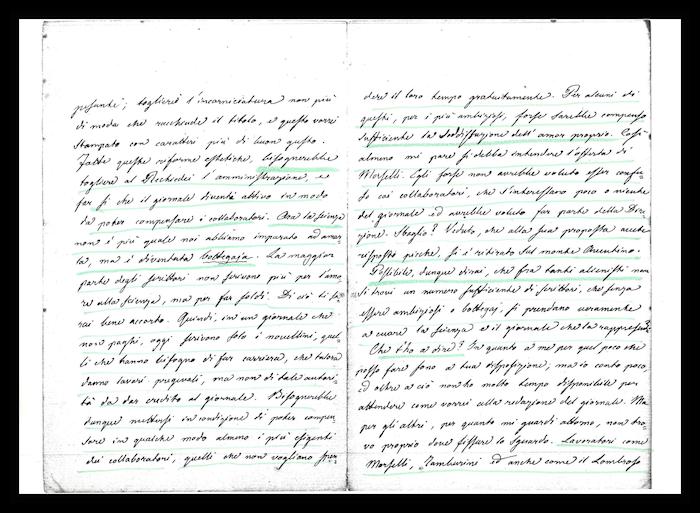 pesante; toglierei l'incorniciatura non più
di moda che racchiude il titolo, e questo vorrei
stampato con caratteri più di buon gusto.
Fatte queste reforme estetiche, bisognerebbe
togliere al Rechiedei l'amministrazione, e
far sì che il giornale diventi attivo in modo
da poter compensare i collaboratori. Ora la scienza
non è più quale noi abbiamo imparato ad amar=
la, ma è diventata bottegaja. La maggior
parte degli scrittori non scrivono più per l'amo=
re alla scienza, ma per far soldi. Di ciò ti sa=
rai bene accorto. Quindi, in un giornale che
non paghi, oggi scrivono solo i novellini, quel=
li che hanno bisogno di far carriera, che talora
danno lavori pregevoli, ma non di tale autori=
tà da dar credito al giornale. Bisognerebbe
dunque mettersi in condizione di poter compen=
sare in qualche modo almeno i più esigenti
dei collaboratori, quelli che non vogliano spen=
dere il loro tempo gratuitamente. Per alcuni di
questi, per i più ambiziosi, forse sarebbe compenso
sufficiente la soddisfazione dell'amor proprio. Così
almeno me pare si debba intendere l'offerta di
Morselli. Egli forse non avrebbe voluto esser confu=
so coi collaboratori, che s'interessano poco o niente
del giornale ed avrebbe voluto far parte della Dire=
zione. Sbaglio? Veduto, che alla sua proposta avete
risposto picche, si è ritirato sul monte Aventino.
Possibile, dunque dirai, che fra tanti alienisti non
si trovi un numero sufficiente di scrittori, che senza
essere ambiziosi o bottegaj, si prendano veramente
a cuore la scienza e il giornale che la rappresenta?
Che t'ho a dire? In quanto a me per quel poco che
posso fare sono a tua disposizione, ma io conto poco,
ed oltre a ciò non ho molto tempo disponibile per
attendere come vorrei alla redazione del giornale. Ma
per gli altri, per quanto mi guardi attorno, non tro=
vo proprio dove fissare lo sguardo. Lavoratori come
Morselli, Tamburini ed anche come il Lombroso